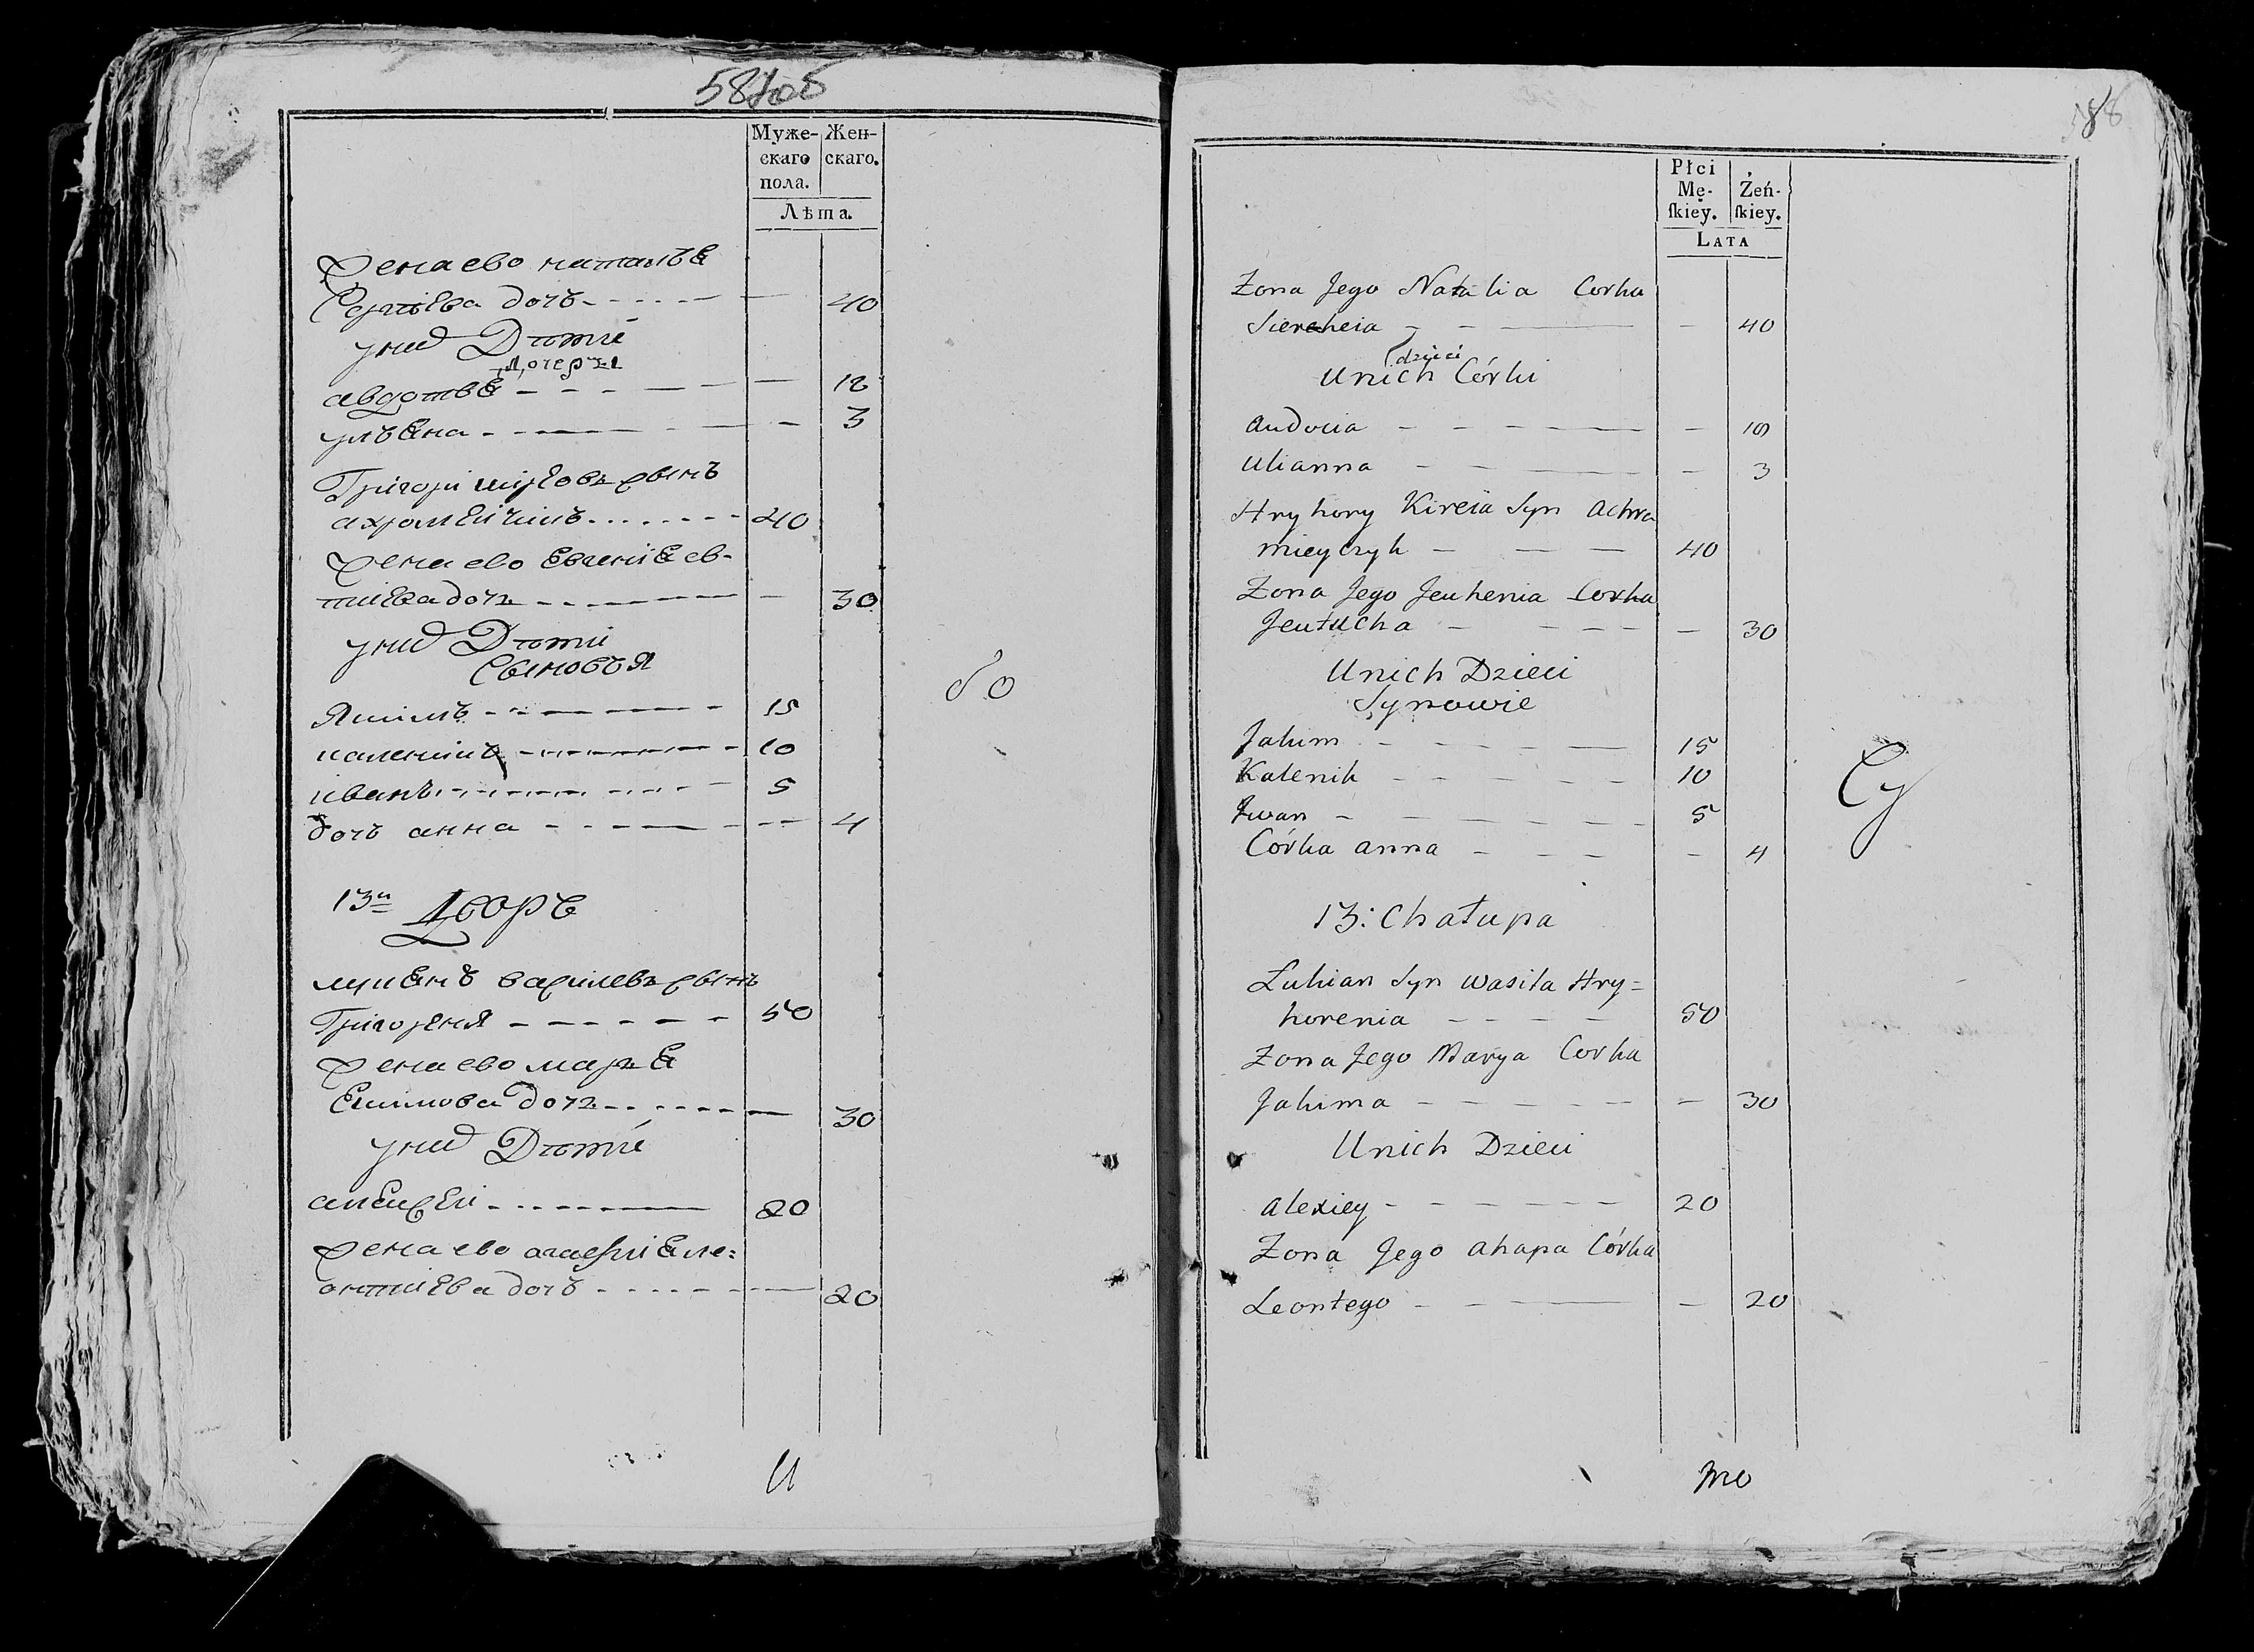 587об
Муже- Жен-
скаго скаго.
пола.
Лѣта.
Жена ево наталья
Сергѣева дочъ 40
у них Дѣти
Дочеры
авдотья 12
ульяна 3
Григори киреовъ сынъ
ахромейчикъ 40
Жена ево Евгения ев-
тиева дочъ 30
у них Дѣти
Сыновья
Якимъ 15
каленикъ 10
иванъ 5
дочъ анна 4
13й Дворъ
лукянъ василевъ сынъ
Григореня 50
Жена ево маря
Екимова дочъ 30
у них Дѣти
алексей 20
Жена ево агафия ле=
онтиева дочъ 20
бо
и
588
Płci
Mę- Żeń-
skiey. skiey.
LATA
Zona Jego Natalia Corka
Siercheia 40
dzieci
Unich Córki
Audocia
Ulianna 3
Hryhory Kireia Syn Achra
mieyczyk 40
Zona Jego Jeuhenia Corka
Jeutucha 30
Unich Dzieci
Synowie
Jakim 15
Kalenik 10
Jwan 5
Córka anna 4
13: Chałupa
Lukian Syn Wasila Hry=
horenia 50
Zona Jego Marya Corka
Jakima 30
Unich Dzieci
Alexiey 20
Zona Jego Ahapa Córka
Leontego 20
Су
то